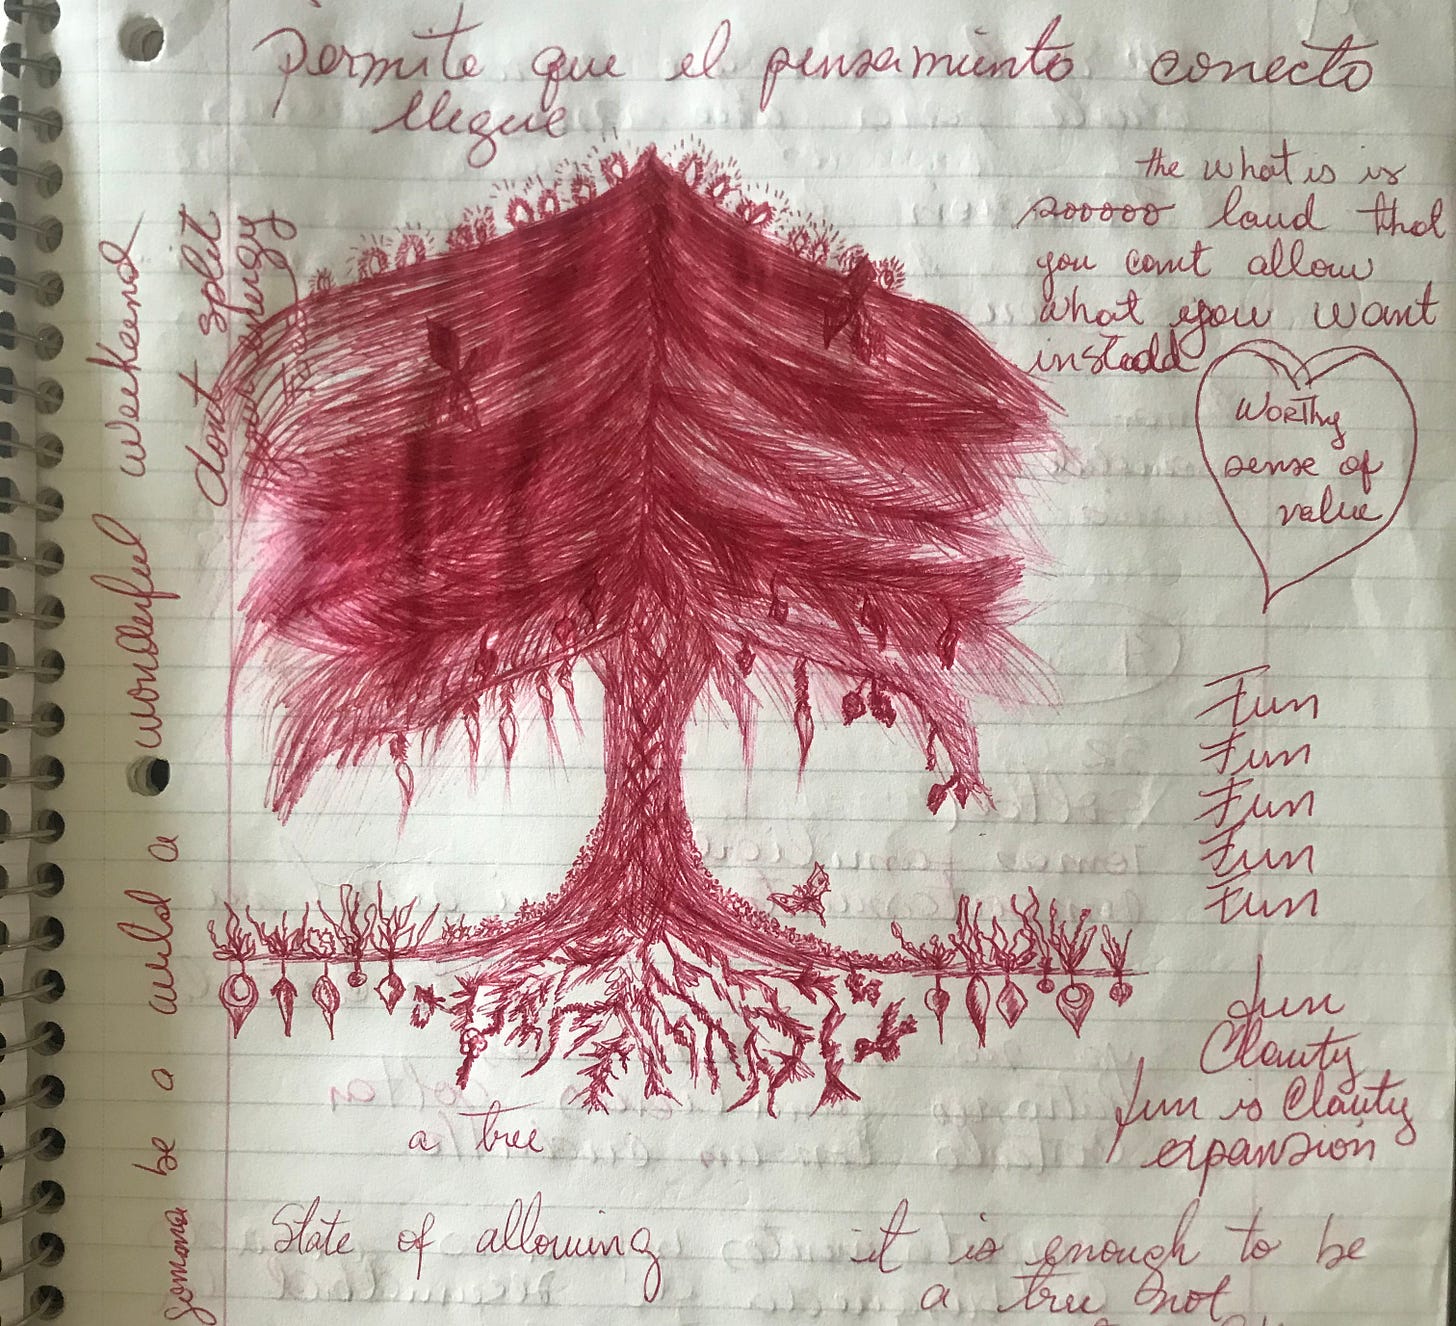 permite que el pensamiento conecto
llegue
the what is is
sooooo loud that
you cant allow
what you want
instead
worthy
sense of
value
dont split
your energy
gonona be a a wild a wonderful weekeend
Fun
Fun
Fun
Fun
Fun
fun
Clauty
fun is Clauty
expansion
a tree
State of allowing
it is enough to be
a tree not